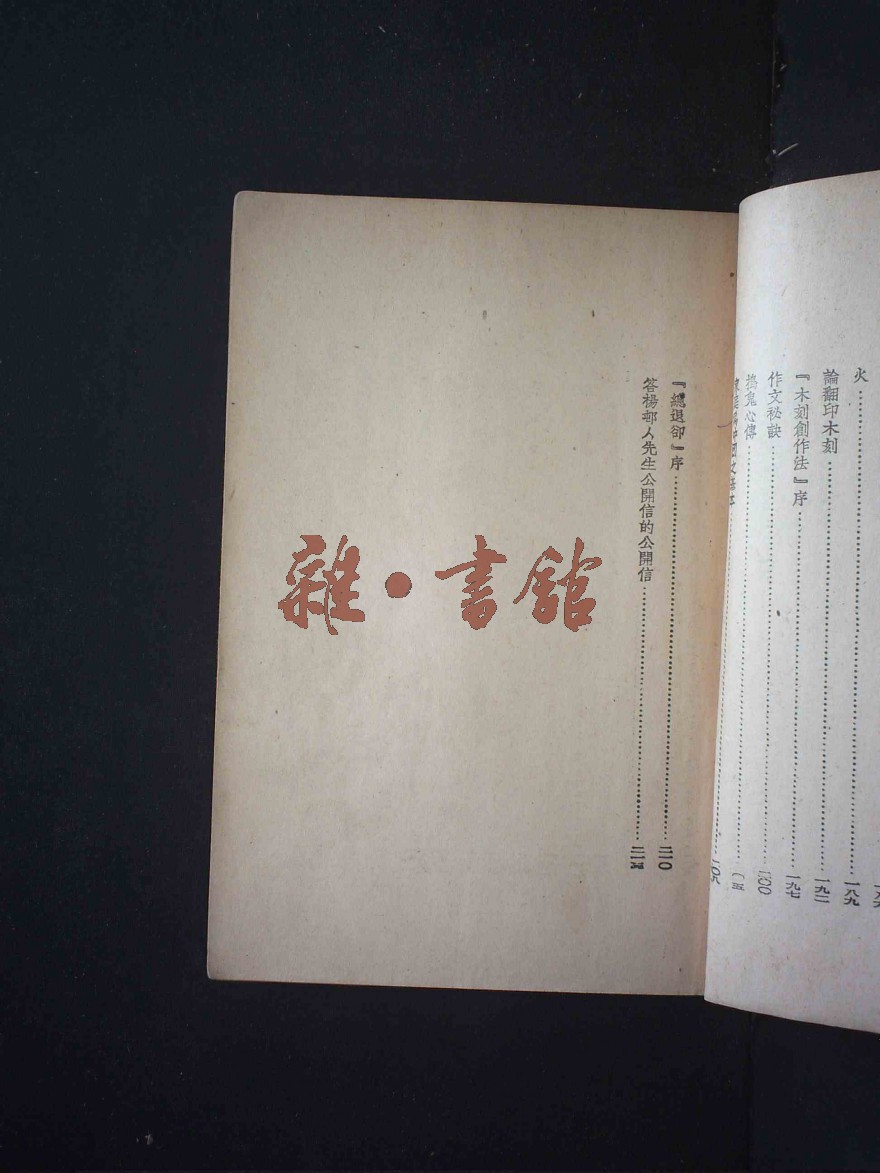 火……一八九
論翻印木刻……一九二
『木刻創作法』序……一九七
作文祕訣……二〇〇
搗鬼心傳
『總退卻』序……二一〇
答楊邨人先生公開信的公開信……二一五
雜·書館